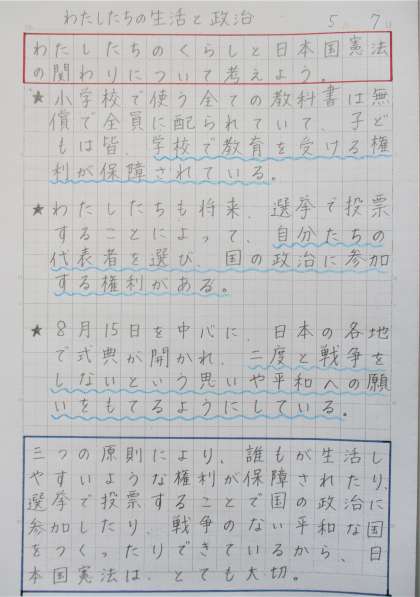 わたしたちの生活と政治 5 7
わたしたちのくらしと日本国憲法
の関わりについて考えよう。
★小学校で使う全ての教科書は無
償で全員に配られていて、子ど
もは皆、学校で教育を受ける権
利が保障されている。
★わたしたちも将来、選挙で投票
することによって、自分たちの
代表者を選び、国の政治に参加
する権利がある。
★8月15日を中心に、日本の各地
で式典が開かれ、二度と戦争を
しないという思いや平和への願
いをもてるようにしている。
三つの原則により、誰もが生活し
やすいような権利が保障されたり、
選挙で投票することで国の政治に
参加したり、戦争のない平和な国
をつくったりできているから、日
本国憲法は、とても大切。